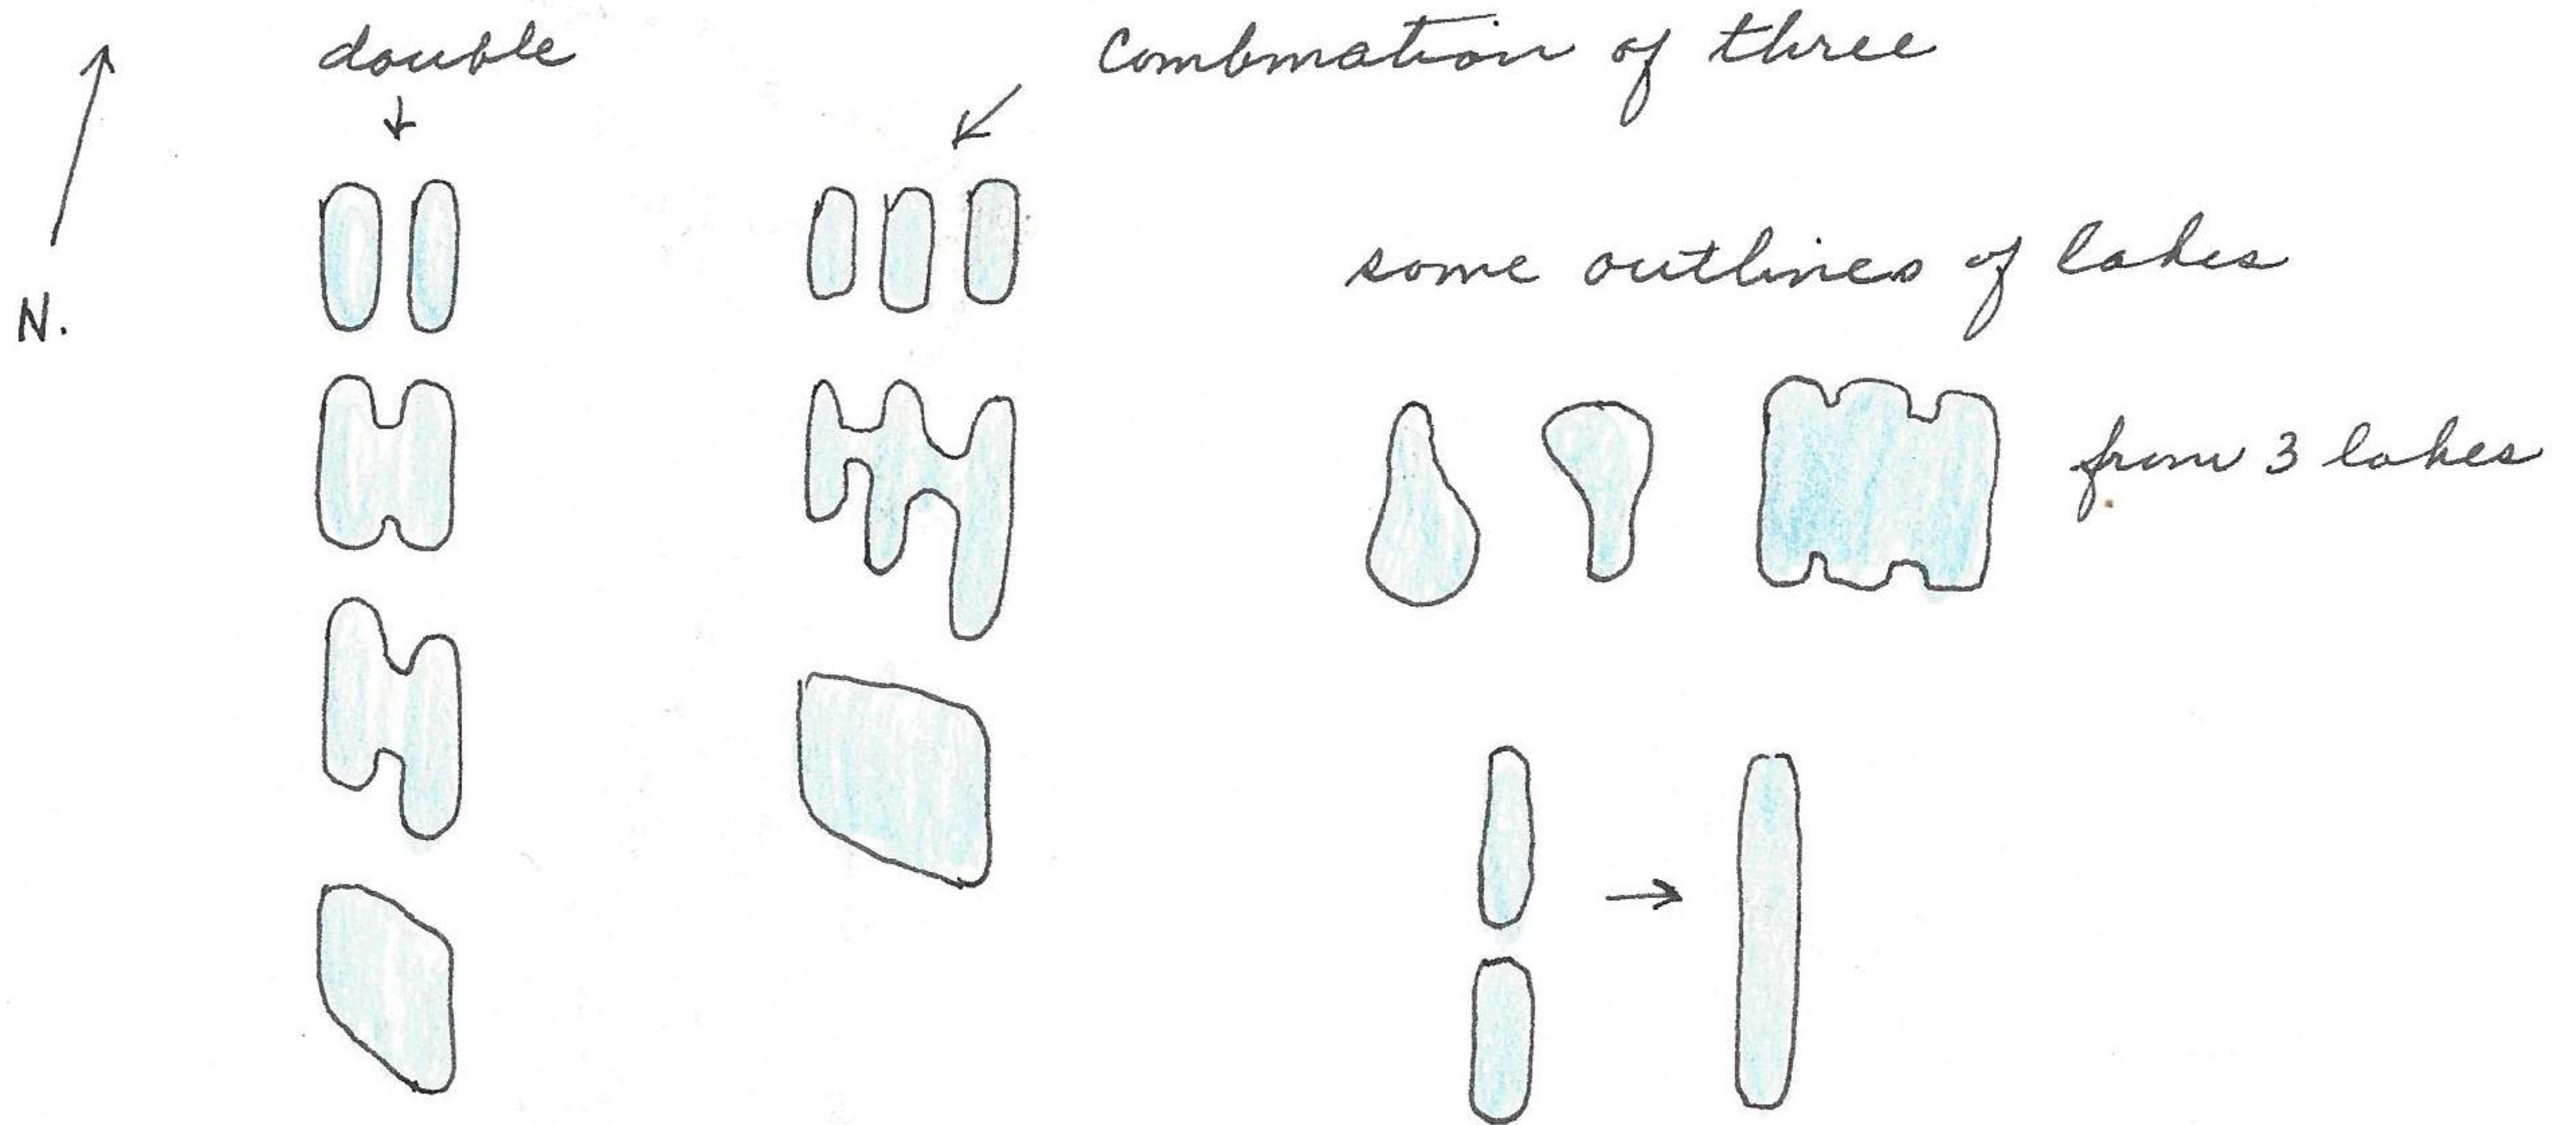 double
Combination of three
some outlines of lakes
N.
from 3 lakes